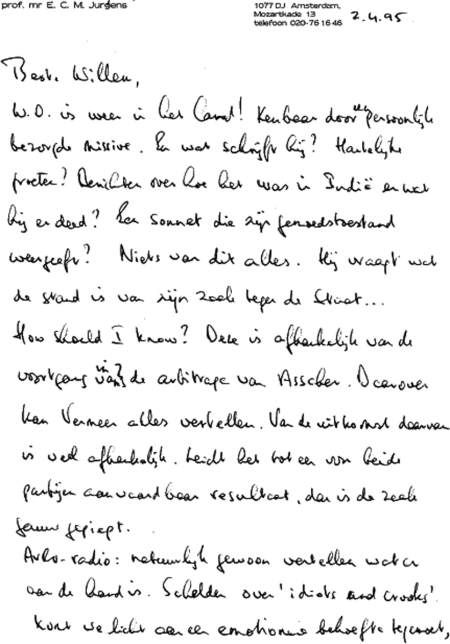 prof. mr E. C. M. Jurgens
1077 DJ Amsterdam,
Mozartkade 13
telefoon 020-76 16 46
2.4.95
Beste Willem,
W.O. is weer in het land! Kenbaar door een persoonlijk
bezorgde missive. En wat schrijft hij? Hartelijke
groeten? Berichten over hoe het was in Indië en wat
hij er deed? Een sonnet die zijn gemoedstoestand
weergeeft? Niets van dit alles. Hij vraagt wat
de stand is van zijn zaak tegen de Staat...
How should I know? Deze is afhankelijk van de
voortgang in/van? de arbitrage van Asscher. Daarover
kan Vermeer alles vertellen. Van de uitkomst daarvan
is veel afhankelijk. Leidt het tot een voor beide
partijen aanvaardbaar resultaat, dan is de zaak
gauw gepiept.
AVRO-radio: natuurlijk gewoon vertellen wat er
aan de hand is. Schelden over 'idiots and crooks'.
komt wellicht aan een emotionele behoefte tegemoet,